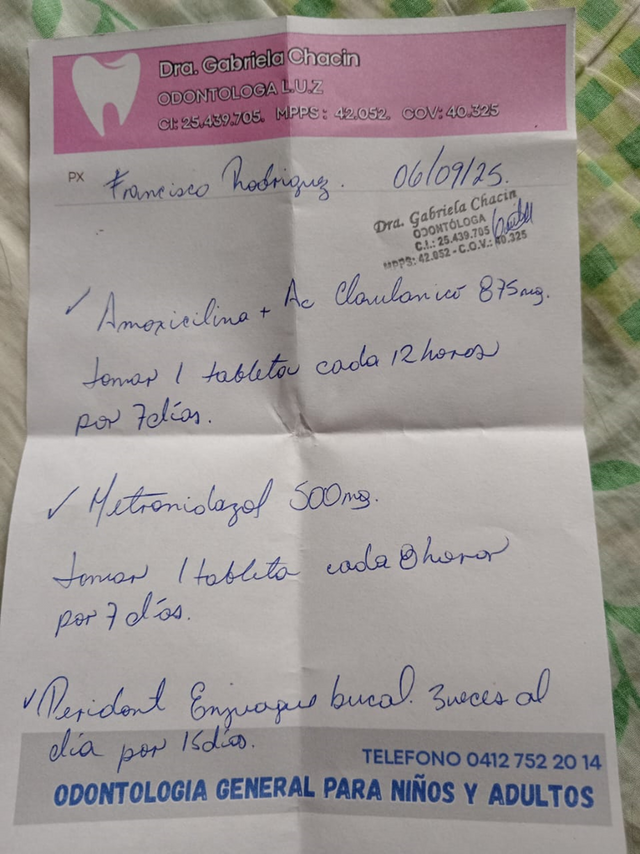 Dra. Gabriela Chacin
ODONTOLOGA L.U.Z
CI: 25.439.705. MPPS: 42.052. COV: 40.325
PX Francisco Rodriguez. 06/09/25.
Dra. Gabriela Chacin
ODONTÓLOGA
C.I.: 25.439.705
MPPS: 42.052 - C.O.V.: 40.325
✓ Amoxicilina + Ac Clavulanico 875mg.
tomar 1 tableta cada 12 horas
por 7 días.
✓ Metronidazol 500mg.
tomar 1 tableta cada 8 horas
por 7 días.
✓ Peridont Enjuague bucal. 3 veces al
día por 15 días.
TELEFONO 0412 752 20 14
ODONTOLOGIA GENERAL PARA NIÑOS Y ADULTOS